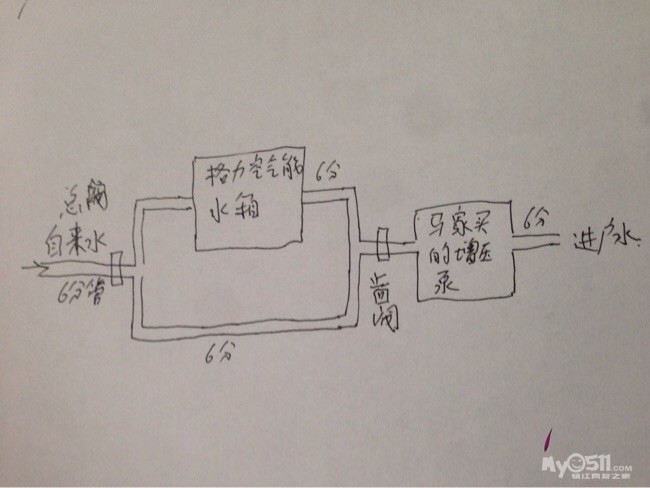 总阀
自来水
6分管
格力空气能
水箱
6分
6分
止回
阀
马家买
的增压
泵
6分
进户水
My0511.COM
镇江网友之家